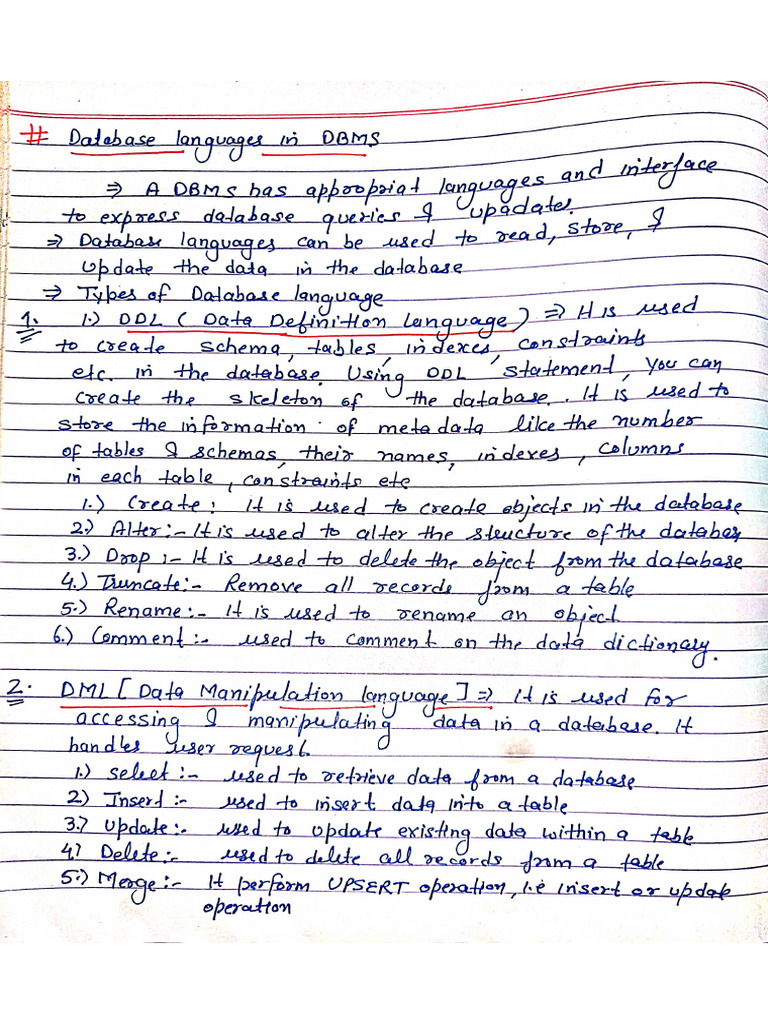 # Database languages in DBMS
⇒ A DBMS has appropriat languages and interface
to express database queries & upadates.
⇒ Database languages can be used to read, store, &
update the data in the database
⇒ Types of Database language
1. 1.) DDL ( Data Definition Language ) ⇒ It is used
to create schema, tables, indexes, constraints
etc. in the database. Using DDL statement, you can
create the skeleton of the database. It is used to
store the information of metadata like the number
of tables & schemas, their names, indexes, columns
in each table, constraints etc
1.) Create : It is used to create objects in the database
2.) Alter :- It is used to alter the structure of the databas
3.) Drop :- It is used to delete the object from the database
4.) Truncate :- Remove all records from a table
5.) Rename :- It is used to rename an object
6.) Comment :- used to comment on the data dictionary.
2. DML [ Data Manipulation language ] ⇒ It is used for
accessing & manipulating data in a database. It
handles user request.
1.) select :- used to retrieve data from a database
2.) Insert :- used to insert data into a table
3.) Update :- used to update existing data within a table
4.) Delete :- used to delete all records from a table
5.) Merge :- It perform UPSERT operation, i.e insert or update
operation